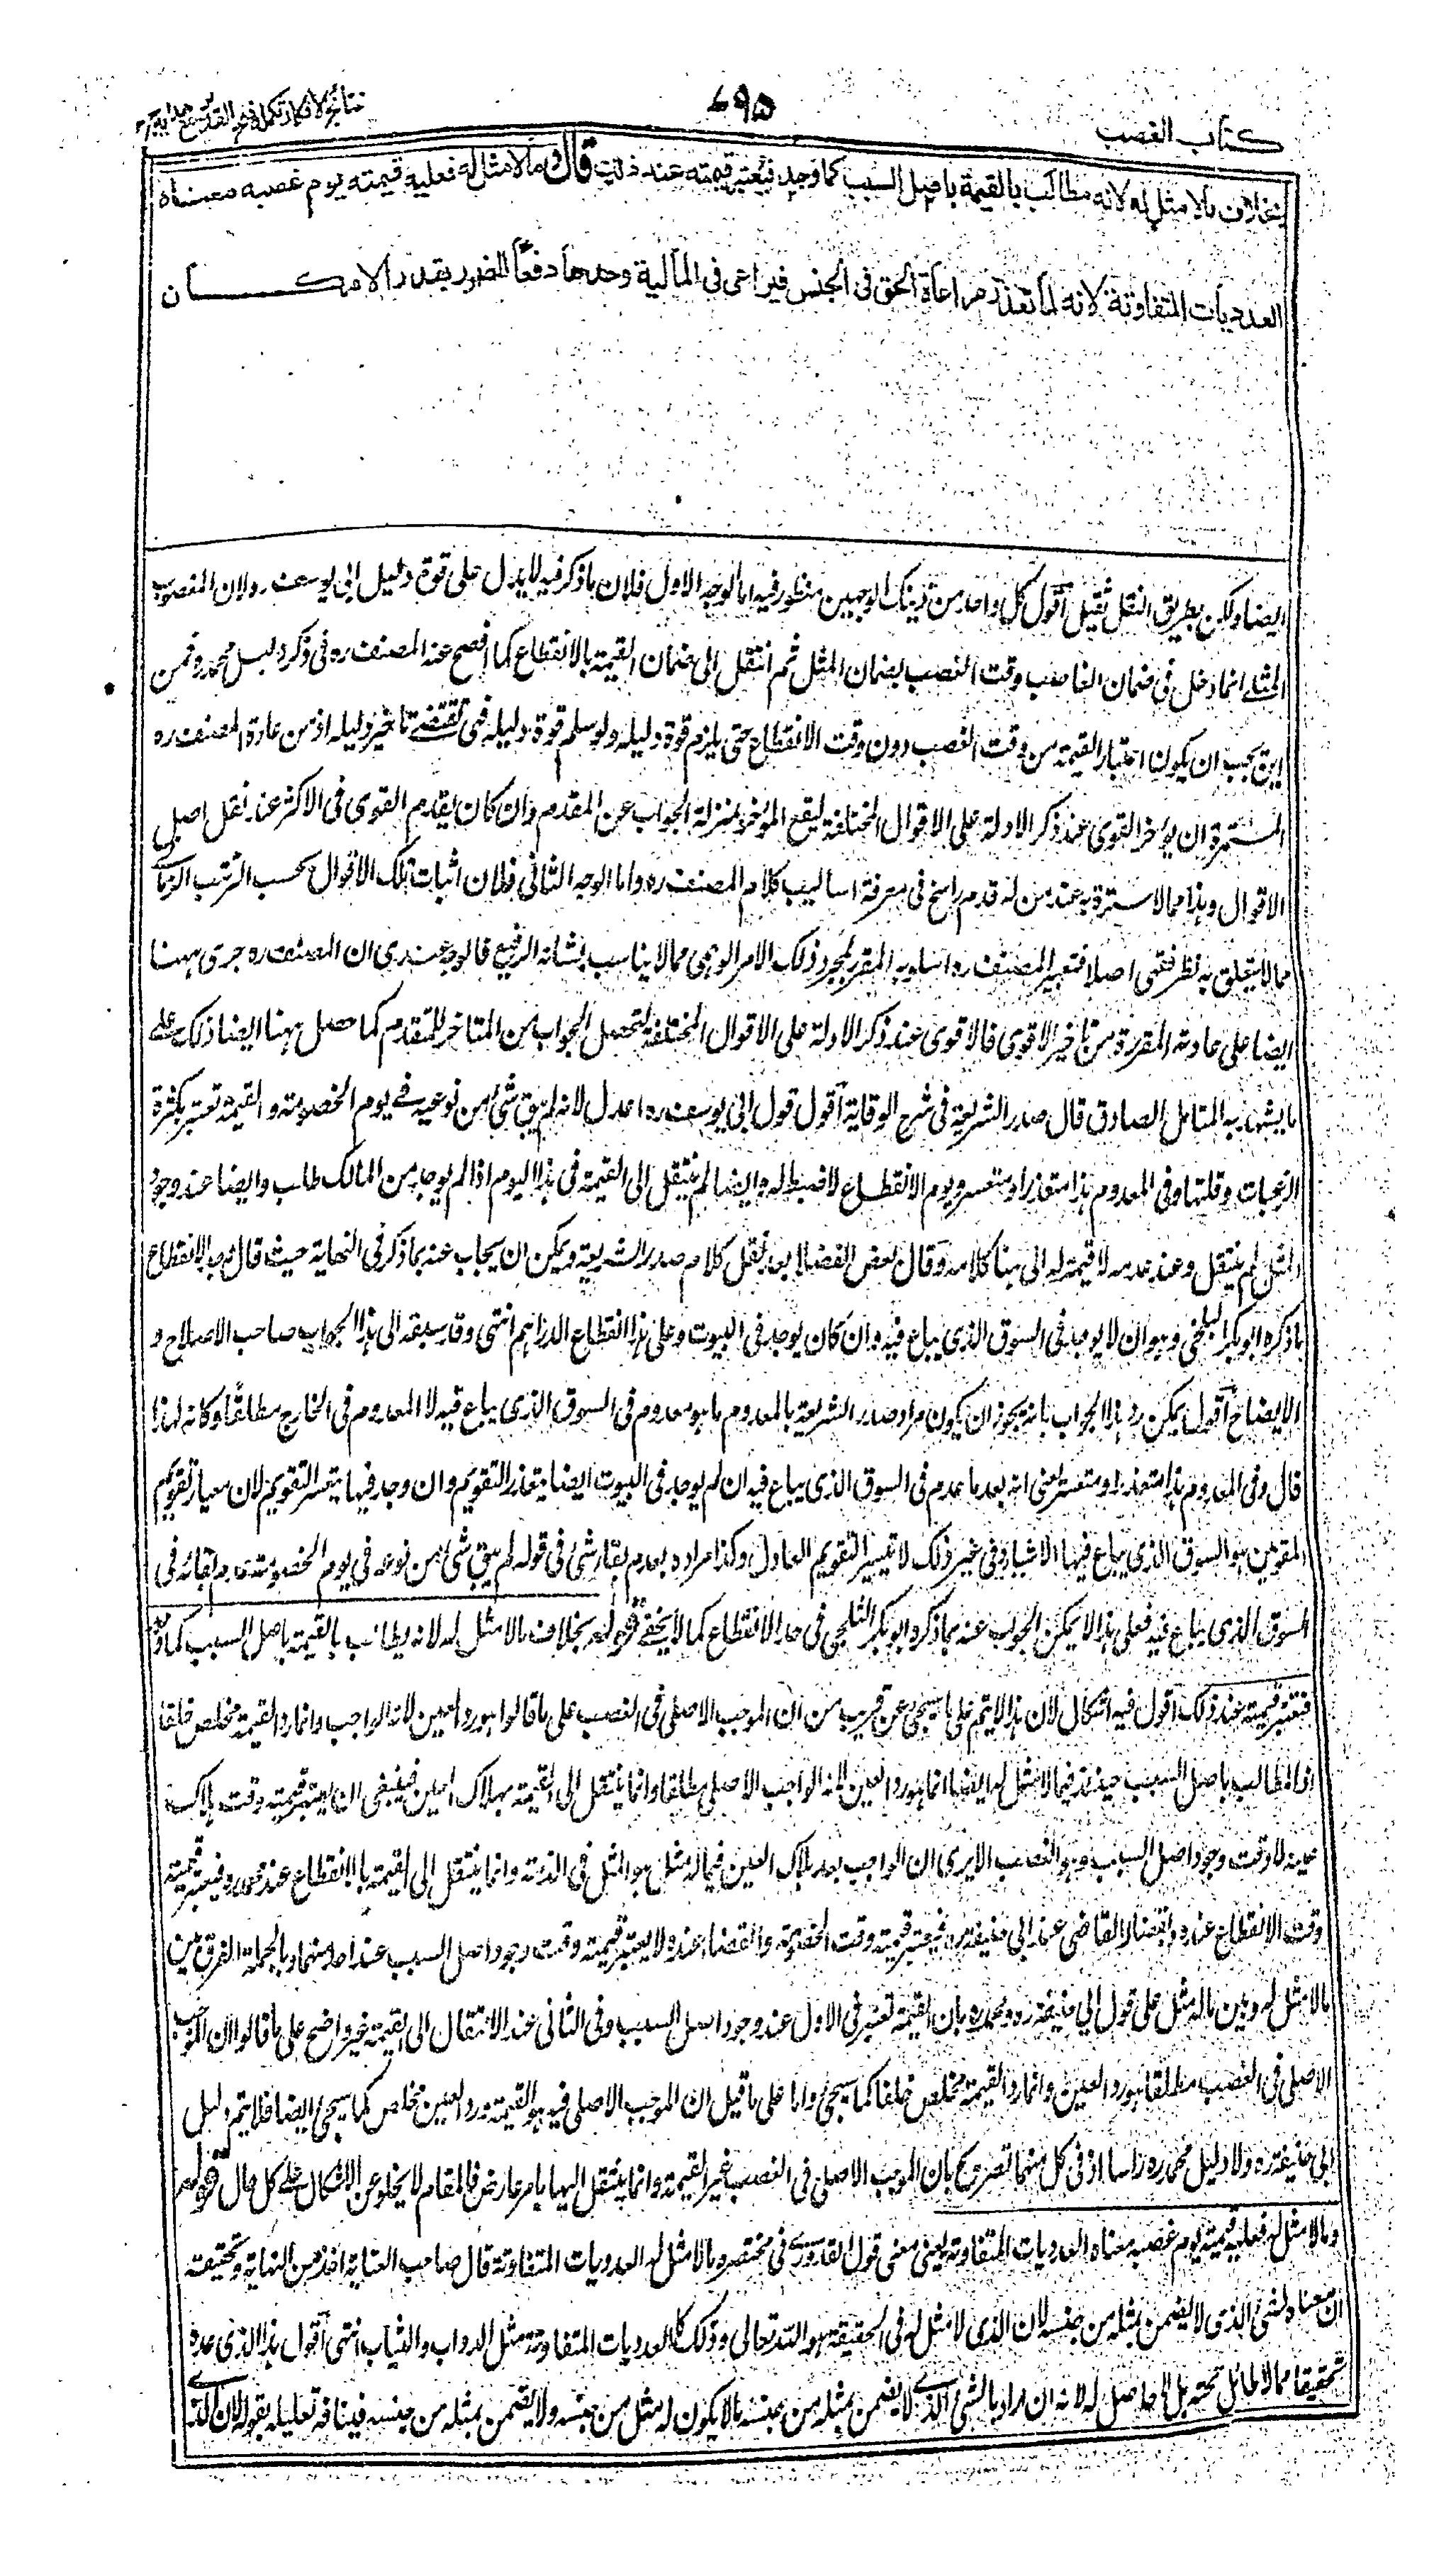 كتاب الغصب
٦٩٥
نتائج الافكار تكملة فتح القدير مع هداية ج
بخلاف ما لا مثل له لانه مطالب بالقيمة باصل السبب كما وجد فيعتبر قيمته عند ذلك قال وما لا مثل له فعليه قيمته يوم غصبه معناه
العدديات المتفاوتة لانه لما تعذر مراعاة الحق في الجنس فيراعى في المالية وحدها دفعاً للضرر بقدر الامكان
ايضا ولكن بطريق النقل ثقيل اقول كل واحد من ذينك الوجهين منظور فيه اما الوجه الاول فلان ما ذكر فيه لا يدل على قوة دليل ابى يوسف ره لان المغصوب
المثلى انما دخل فى ضمان الغاصب وقت الغصب بضمان المثل ثم انتقل الى ضمان القيمة بالانقطاع كما افصح عنه المصنف ره فى ذكر دليل محمد ره فمن
اين يجب ان يكون اعتبار القيمة من وقت الغصب دون وقت الانقطاع حتى يلزم قوة دليله ولو سلم قوة دليله فهى تقتضى تاخير دليله اذ من عادة المصنف ره
المستمرة ان يؤخر القوى عند ذكر الادلة على الاقوال المختلفة ليقع المؤخر بمنزلة الجواب عن المقدم وان كان يقدم القوى فى الاكثر عند نقل اصل
الاقوال وهذا مما لا سترة به عند من له قدم راسخ فى معرفة اساليب كلام المصنف ره واما الوجه الثانى فلان اثبات تلك الاقوال بحسب الترتب الزمانى
مما لا يتعلق به نظر فقهى اصلا فتغيير المصنف ره اسلوبه المقرر لمجرد ذلك الامر الوهمى مما لا يناسب بشانه الرفيع فالوجه عندى ان المصنف ره جرى ههنا
ايضا على عادته المقررة من تاخير الاقوى فالاقوى عند ذكر الادلة على الاقوال المختلفة لتحصل الجواب من المتاخر للمتقدم كما حصل ههنا ايضا ذلك على
ما يشهد به المتامل الصادق قال صدر الشريعة فى شرح الوقاية اقول قول ابى يوسف ره اعدل لانه لم يبق شئ من نوعيه فى يوم الخصومة والقيمة تعتبر بكثرة
الرغبات وقلتها وفى المعدوم هذا متعذر او متعسر ويوم الانقطاع لا ضبط له وايضا لم ينتقل الى القيمة فى هذا اليوم اذا لم يوجد من المالك طلب وايضا عند وجود
المثل لم ينتقل وعند عدمه لا قيمة له الى هنا كلامه وقال بعض الفضلاء بعد نقل كلام صدر الشريعة ويمكن ان يجاب عنه بما ذكر فى النهاية حيث قال وحد الانقطاع
ما ذكره ابو بكر البلخى وهو ان لا يوجد فى السوق الذى يباع فيه وان كان يوجد فى البيوت وعلى هذا انقطاع الدراهم انتهى وقد سبقه الى هذا الجواب صاحب الاصلاح و
الايضاح اقول يمكن رد هذا الجواب بانه يجوز ان يكون مراد صدر الشريعة بالمعدوم ما هو معدوم فى السوق الذى يباع فيه لا المعدوم فى الخارج مطلقا وكانه لهذا
قال وفى المعدوم هذا متعذر او متعسر يعنى انه بعد ما عدم فى السوق الذى يباع فيه ان لم يوجد فى البيوت ايضا يتعذر التقويم وان وجد فيها يتعسر التقويم لان معيار تقويم
المقومين هو السوق الذى يباع فيها الاشياء وفى غير ذلك لا تيسر التقويم العادل وكذا مراده بعدم بقاء شئ فى قوله لم يبق شئ من نوعه فى يوم الخصومة عدم بقائه فى
السوق الذى يباع فيه فعلى هذا لا يمكن الجواب عنه بما ذكره ابو بكر الثلجى فى حد الانقطاع كما لا يخفى قوله بخلاف ما لا مثل له لانه يطالب بالقيمة باصل السبب كما وجد
فتعتبر قيمته عند ذلك اقول فيه اشكال لان هذا لا يتم على ما سيجئ عن قريب من ان الموجب الاصلى فى الغصب على ما قالوا هو رد العين لانه الواجب وانما رد القيمة مخلص خلفا
اذ المطالب باصل السبب حينئذ فيما لا مثل له ايضا انما هو رد العين لانه الواجب الاصلى مطلقا وانما ينتقل الى القيمة بهلاك العين فينبغى ان يعتبر قيمته وقت هلاك
عينه لا وقت وجود اصل السبب وهو الغصب الا يرى ان الواجب بعد هلاك العين فيما له مثل هو المثل فى الذمة وانما ينتقل الى القيمة بالانقطاع عند محمد ره فيعتبر قيمته
وقت الانقطاع عنده وبقضاء القاضى عند ابى حنيفة ره فيعتبر قيمته وقت الخصومة والقضاء عنده لا يعتبر قيمته وقت وجود اصل السبب عند احد منهما وبالجملة الفرق بين
ما لا مثل له وبين ما له مثل على قول ابى حنيفة ره ومحمد ره بان القيمة تعتبر فى الاول عند وجود اصل السبب وفى الثانى عند الانتقال الى القيمة غير واضح على ما قالوا ان الموجب
الاصلى فى الغصب مطلقا هو رد العين وانما رد القيمة مخلص خلفا كما سيجئ واما على ما قيل ان الموجب الاصلى فيه هو القيمة ورد العين مخلص كما سيجئ ايضا فلا يتم دليل
ابى حنيفة ره ولا دليل محمد ره راسا اذ فى كل منهما تصريح بان الموجب الاصلى فى الغصب غير القيمة وانما ينتقل اليها بامر عارض فالمقام لا يخلو عن الاشكال على كل حال قوله
وما لا مثل له فعليه قيمته يوم غصبه معناه العدديات المتفاوتة يعنى معنى قول القدورى فى مختصره ما لا مثل له العدديات المتفاوتة قال صاحب العناية اخذ من النهاية وتحقيقه
ان معناه الشئ الذى لا يضمن بمثله من جنسه لان الذى لا مثل له فى الحقيقة هو الله تعالى وذلك كالعدديات المتفاوتة مثل الدواب والثياب انتهى اقول هذا الذى عده
تحقيقا مما لا طائل تحته بل لا حاصل له لانه ان اراد بالشئ الذى لا يضمن بمثله من جنسه ما لا يكون له مثل من جنسه ولا يضمن بمثله من جنسه فينافه تعليله بقوله لان الذى